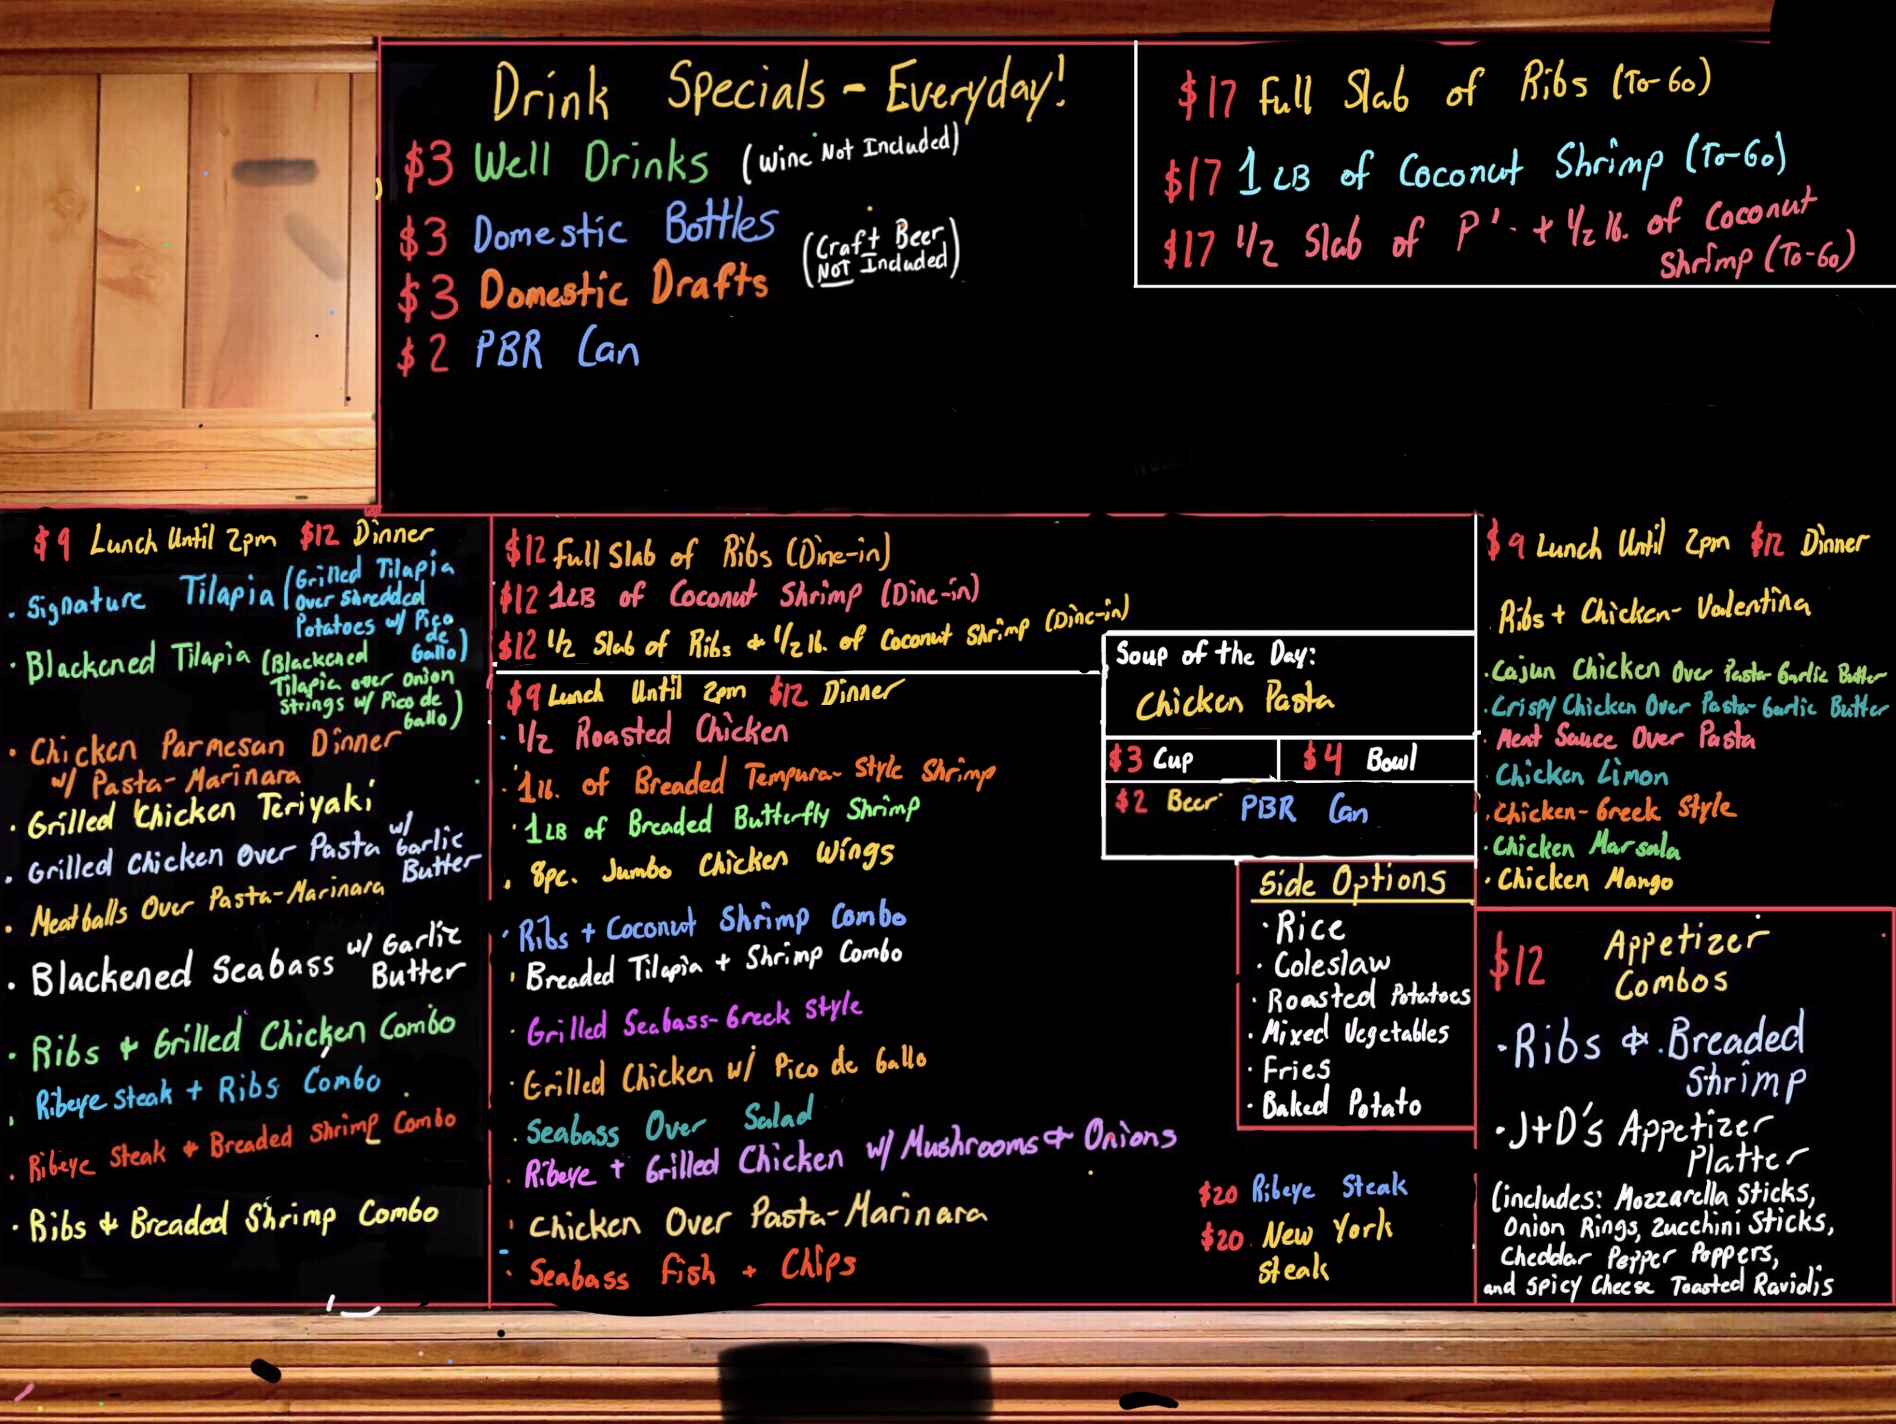 Drink Specials - Everyday!
$3 Well Drinks (Wine Not Included)
$3 Domestic Bottles
(Craft Beer
NOT Included)
$3 Domestic Drafts
$2 PBR Can
$17 Full Slab of Ribs (To-Go)
$17 1 LB of Coconut Shrimp (To-Go)
$17 1/2 Slab of + 1/2 lb. of Coconut
Shrimp (To-Go)
$9 Lunch Until 2pm $12 Dinner
· Signature Tilapia (Grilled Tilapia
over shredded
Potatoes w/ Pico
de
Gallo)
· Blackened Tilapia (Blackened
Tilapia over onion
strings w/ Pico de
Gallo)
· Chicken Parmesan Dinner
w/ Pasta-Marinara
· Grilled Chicken Teriyaki
· Grilled Chicken Over Pasta w/
Garlic
Butter
· Meatballs Over Pasta-Marinara
· Blackened Seabass w/ Garlic
Butter
· Ribs & Grilled Chicken Combo
· Ribeye Steak + Ribs Combo
· Ribeye Steak & Breaded Shrimp Combo
· Ribs & Breaded Shrimp Combo
$12 Full Slab of Ribs (Dine-in)
$12 1LB of Coconut Shrimp (Dine-in)
$12 1/2 Slab of Ribs & 1/2 lb. of Coconut Shrimp (Dine-in)
$9 Lunch Until 2pm $12 Dinner
· 1/2 Roasted Chicken
· 1lb. of Breaded Tempura-Style Shrimp
· 1LB of Breaded Butterfly Shrimp
· 8pc. Jumbo Chicken Wings
· Ribs + Coconut Shrimp Combo
· Breaded Tilapia + Shrimp Combo
· Grilled Seabass-Greek Style
· Grilled Chicken w/ Pico de Gallo
· Seabass Over Salad
· Ribeye + Grilled Chicken w/ Mushrooms & Onions
· Chicken Over Pasta-Marinara
· Seabass Fish + Chips
Soup of the Day:
Chicken Pasta
$3 Cup
$4 Bowl
$2 Beer PBR Can
Side Options
· Rice
· Coleslaw
· Roasted Potatoes
· Mixed Vegetables
· Fries
· Baked Potato
$20 Ribeye Steak
$20 New York
Steak
$9 Lunch Until 2pm $12 Dinner
· Ribs + Chicken- Valentina
· Cajun Chicken Over Pasta-Garlic Butter
· Crispy Chicken Over Pasta-Garlic Butter
· Meat Sauce Over Pasta
· Chicken Limon
· Chicken-Greek Style
· Chicken Marsala
· Chicken Mango
$12 Appetizer
Combos
· Ribs & Breaded
Shrimp
· J+D's Appetizer
Platter
(includes: Mozzarella Sticks,
Onion Rings, Zucchini Sticks,
Cheddar Pepper Poppers,
and Spicy Cheese Toasted Raviolis